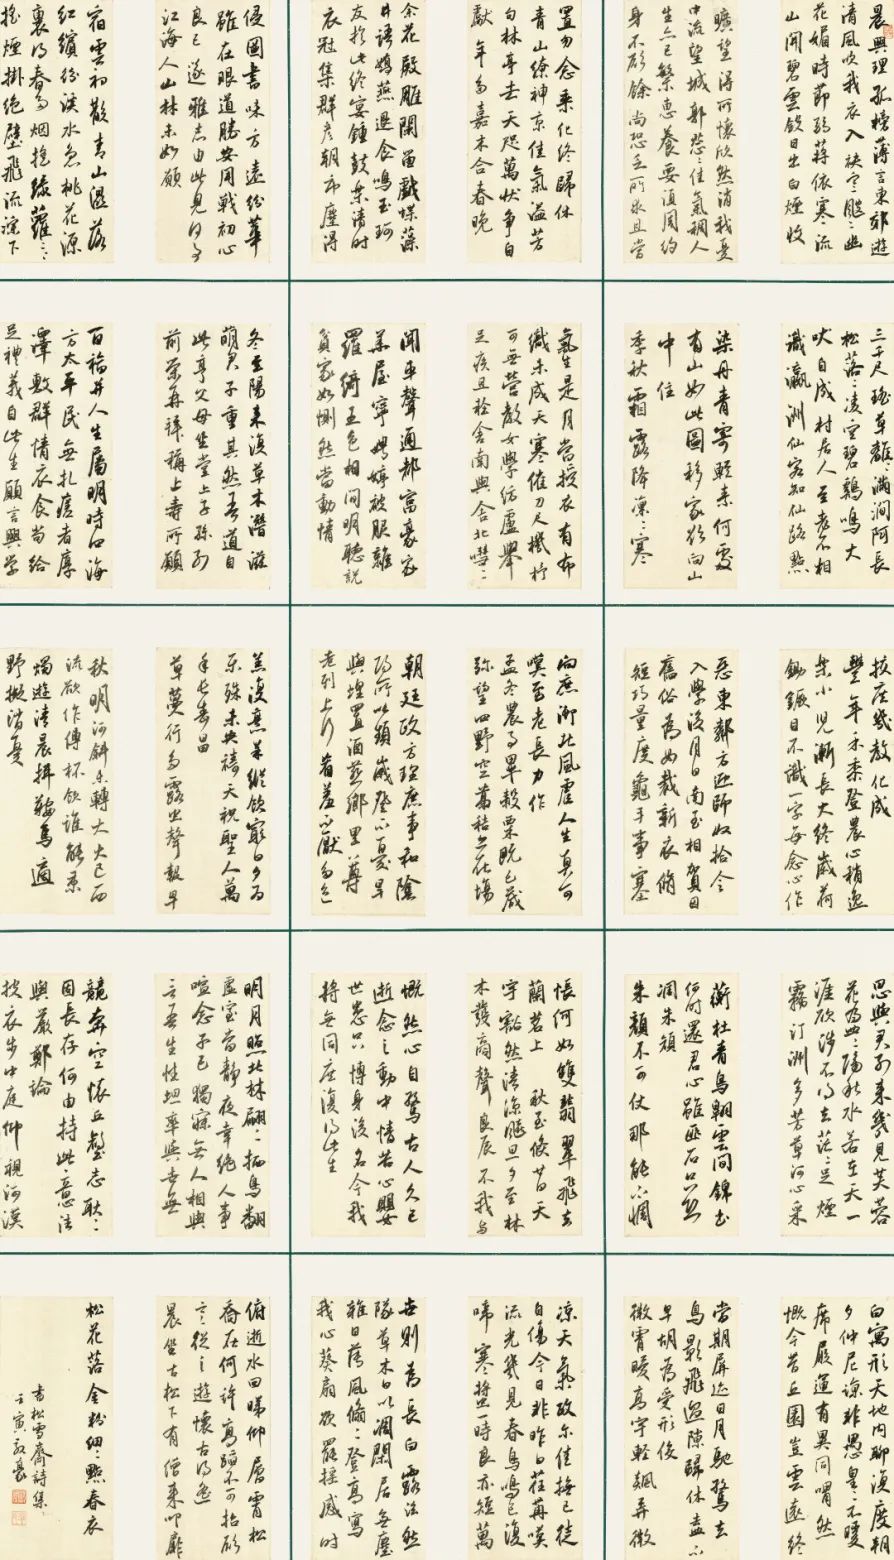 晨興理孤榜薄言東郊遊
清風吹我衣入袂寒颼々幽
花媚時節弱蔣依寒流
山開碧雲斂日出白煙收
曠望得所懷欣然消我憂
中流望城郭葱々佳氣稠人
生亦已繁惠養要須周約
身不願餘尚恐乏所求且當
置勿念乘化終歸休
青山繚神京佳氣溢芳
甸林亭去天咫萬狀爭自
獻年多嘉木合春晚
余花殿雕闌留戲蝶藻
井語嬌燕退食鳴玉珂
友于此終宴鍾鼓樂清時
衣冠集群彦朝市塵得
侵圖書味方遠紛華
雖在眼道勝安用戰初心
良已遂雅志由此見何多
江海人山林未如願
宿雲初散青山濕落
紅繽紛溪水急桃花源
裏得春多烟挽綠蘿々
搖煙掛絕壁飛流淙下
三千尺瑤草離々滿澗阿長
松落々凌空碧鷄鳴犬
吠自成村居人至老不相
識瀛洲仙客知仙路點
染丹青寄輕素何處
有山如此圖移家欲向山
中住
季秋霜露降凜々寒
氣生是月當授衣有布
織未成天寒催刀尺機杼
可無營教女學紡纑舉
足疾且輕舍南與舍北嘒々
聞車聲通都富豪家
華屋寧娉婷被服雜
羅綺五色相間明聽說
貧家女惻然當動情
冬至陽來復草木潛滋
萌君子重其然吾道自
此亨父母坐堂上子孫列
前榮再拜稱上壽所願
百福并人生屬明時四海
方太平民無札瘥者厚
澤敷群情衣食苟給
足禮義自此生願言興學
校庶幾教化成
豐年禾黍登農心稍逸
樂小兒漸長大終歲荷
鋤钁目不識一字每念心作
惡東鄰方迎師收拾令
入學後月日南至相賀因
舊俗為女裁新衣脩
短巧量度龜手事塞
向庶御北風虐人生真可
嘆至老長力作
孟冬農事畢穀粟既已藏
弥望四野空藁秸亦在場
朝廷政方理庶事和陰
陽所以頻歲登不憂旱
與蝗置酒燕鄉里尊
老列上行肴羞不厭多炰
羔復烹羊縱飲窮日夕為
樂殊未央禱天祝聖人萬
年長壽昌
草蔓行多露蟲聲報早
秋明河斜未轉大火已西
流欲作傳杯飲誰能秉
燭遊清晨揖鞍馬適
野擬消憂
思與君別來幾見芙蓉
花盈々隔秋水若在天一
涯欲涉不得去茫々足煙
霧汀洲多芳草何心采
蘅杜青鳥翔雲間錦書
何時還君心雖匪石只恐
凋朱顏
朱顏不可仗那能不惆
悵何如雙翡翠飛去
蘭苕上 秋至倏昔日天
宇豁然清涼飈旦夕至林
木發商聲良辰不我與
慨然心目驚古人久已
逝念之動中情苦心嬰
世患只博身後名今我
將無同庶復得此生
明月照北林翩々栖鳥翻
虚室當静夜幸絶人事
喧念子已獨寐無人相與
言吾生性坦率與世無
競奔空懷丘壑志耿々
固長存何由持此意往
與嚴鄭論
披衣步中庭仰視河漢
白寓形天地内聊復度朝
夕仲尼諒非愚皇々不暖
席履運有異同喟然
慨今昔丘園豈云遠終
當期屏迹日月馳騖去
鳥影飛過隙歸休盍不
早胡為受形役
微霄曖高宇輕飆弄微
凉天氣政尔佳撫己徒
自傷今日非昨日荏苒嘆
流光幾見春鳥鳴已復
啼寒螿一時良亦短萬
世則為長白露
草木日以凋閑居無塵
雜日落風翛々登高寫
我心葵扇欲罷搖感時
俯逝水睇仰層霄松
喬在何許高蹤不可招願
言從之遊懷古得逍
晨坐古松下有僧來叩扉
松花落金粉細々點春衣
書松雪齋詩集
壬寅